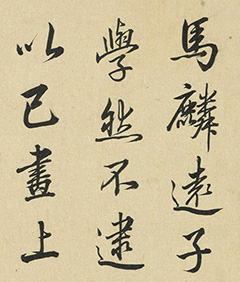 馬麟遠子
學然不逮
以已畫上